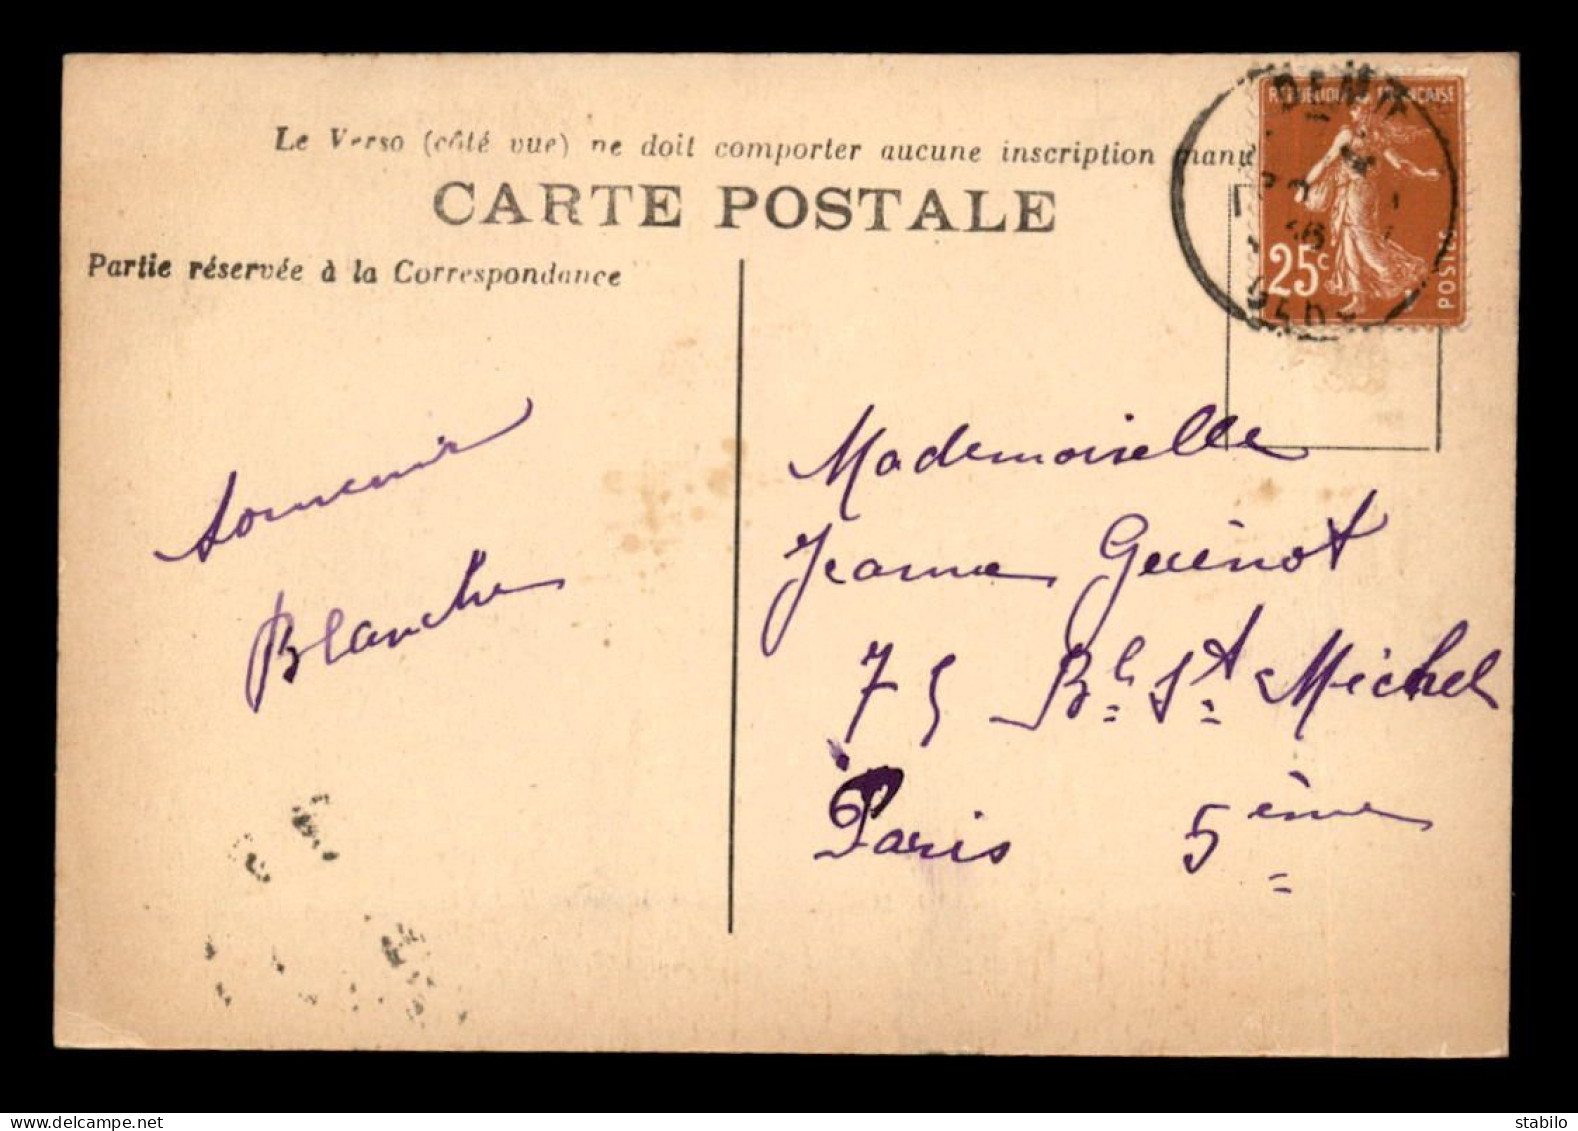 Le Verso (côté vue) ne doit comporter aucune inscription manu
CARTE POSTALE
Partie réservée à la Correspondance
RÉPUBLIQUE FRANÇAISE
25c
POSTES
Souvenir
Blanche
Mademoiselle
Jeanne Guénot
75 Bd St Michel
Paris 5ème
www.delcampe.net
stabilo